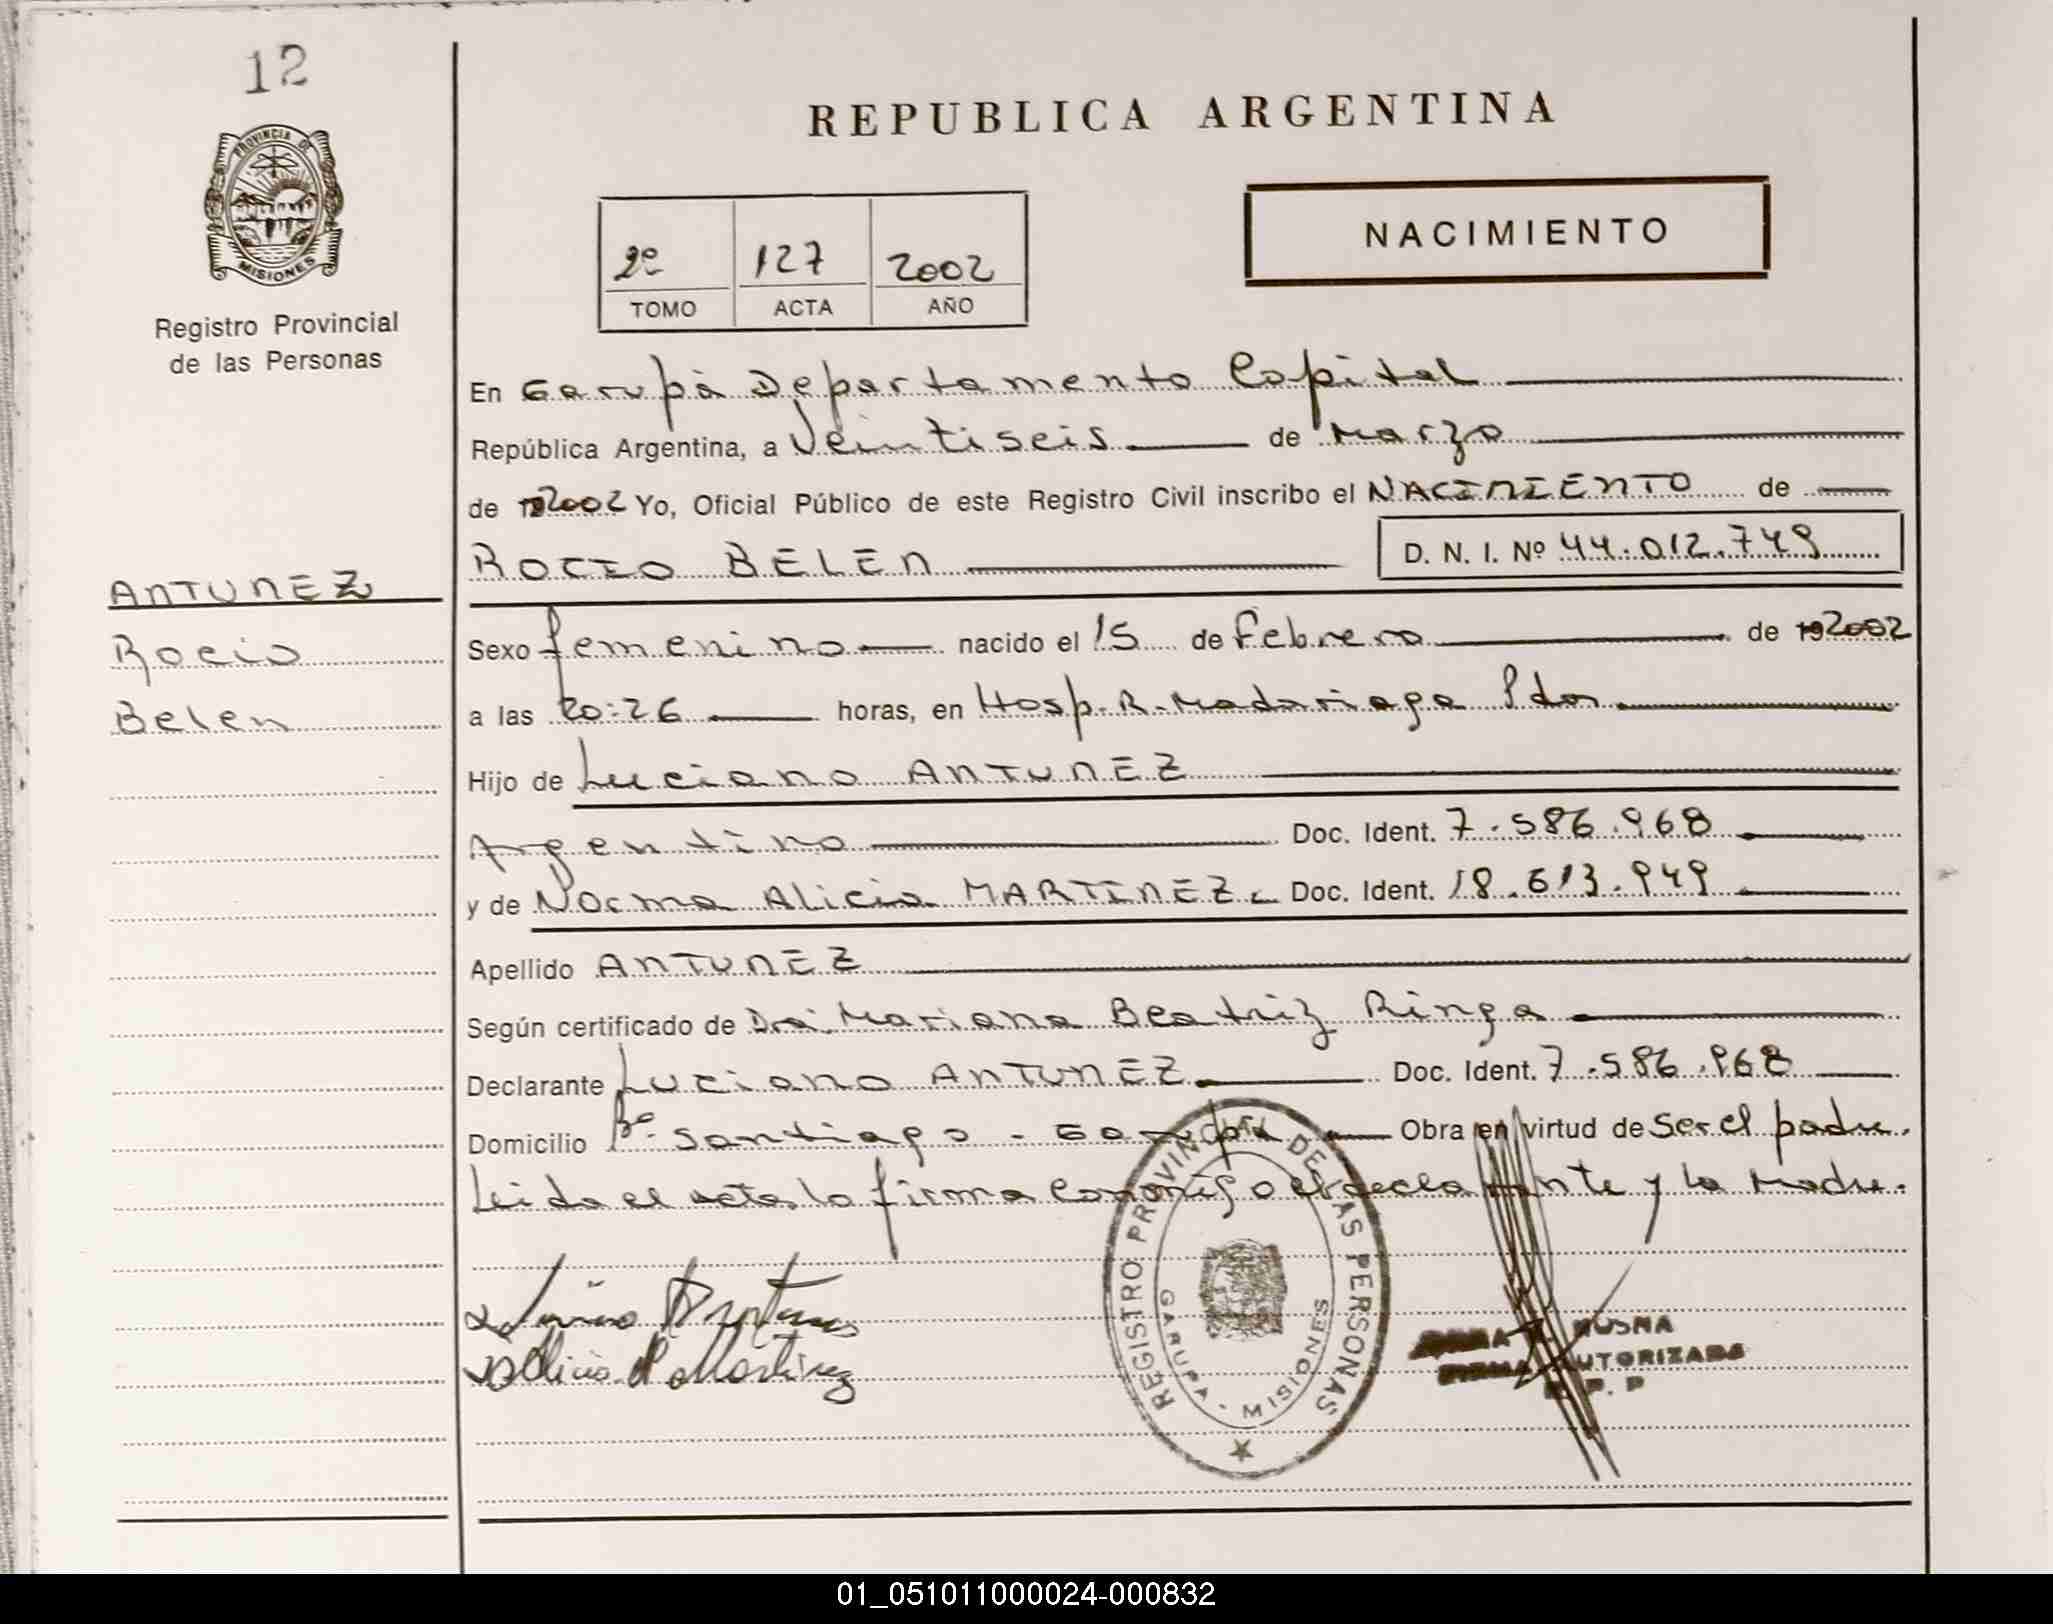 12
PROVINCIA DE
MISIONES
Registro Provincial
de las Personas
ANTUNEZ
Rocio
Belen
REPUBLICA ARGENTINA
2º 127 2002
TOMO ACTA AÑO
NACIMIENTO
En Garupà Departamento Capital
República Argentina, a Veintiseis de Marzo
de 2002 Yo, Oficial Público de este Registro Civil inscribo el NACIMIENTO de
ROCIO BELEN D. N. I. Nº 44.012.749
Sexo femenino nacido el 15 de Febrero de 192002
a las 20:26 horas, en Hosp. R. Madariaga Pdas
Hijo de Luciano ANTUNEZ
Argentino Doc. Ident. 7.586.968
y de Norma Alicia MARTINEZ Doc. Ident. 18.613.949
Apellido ANTUNEZ
Según certificado de Dra. Mariana Beatriz Ringa
Declarante Luciano ANTUNEZ Doc. Ident. 7.586.968
Domicilio Bº Santiago - Garupà Obra en virtud de Ser el padre.
Leida el acta, la firma conmigo el declarante y la Madre.
REGISTRO PROVINCIAL DE LAS PERSONAS
GARUPA - MISIONES
Alicia Martinez
MUSNA
FIRMA AUTORIZADA
R. P. P
01_051011000024-000832